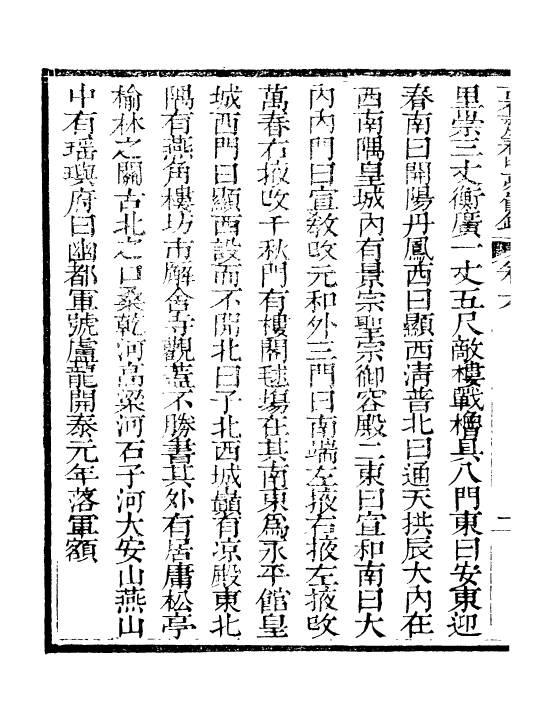 卷六
二
里崇三丈衡廣一丈五尺敵樓戰櫓具八門東曰安東迎
春南曰開陽丹鳳西曰顯西清普北曰通天拱辰大內在
西南隅皇城內有景宗聖宗御容殿二東曰宣和南曰大
內內門曰宣敎攺元和外三門曰南端左掖右掖左掖攺
萬春右掖攺千秋門有樓閣毬塲在其南東爲永平館皇
城西門曰顯西設而不開北曰子北西城巓有凉殿東北
隅有燕角樓坊市廨舍寺觀蓋不勝書其外有居庸松亭
榆林之關古北之口桑乾河高梁河石子河大安山燕山
中有瑶璵府曰幽都軍號盧龍開泰元年落軍額